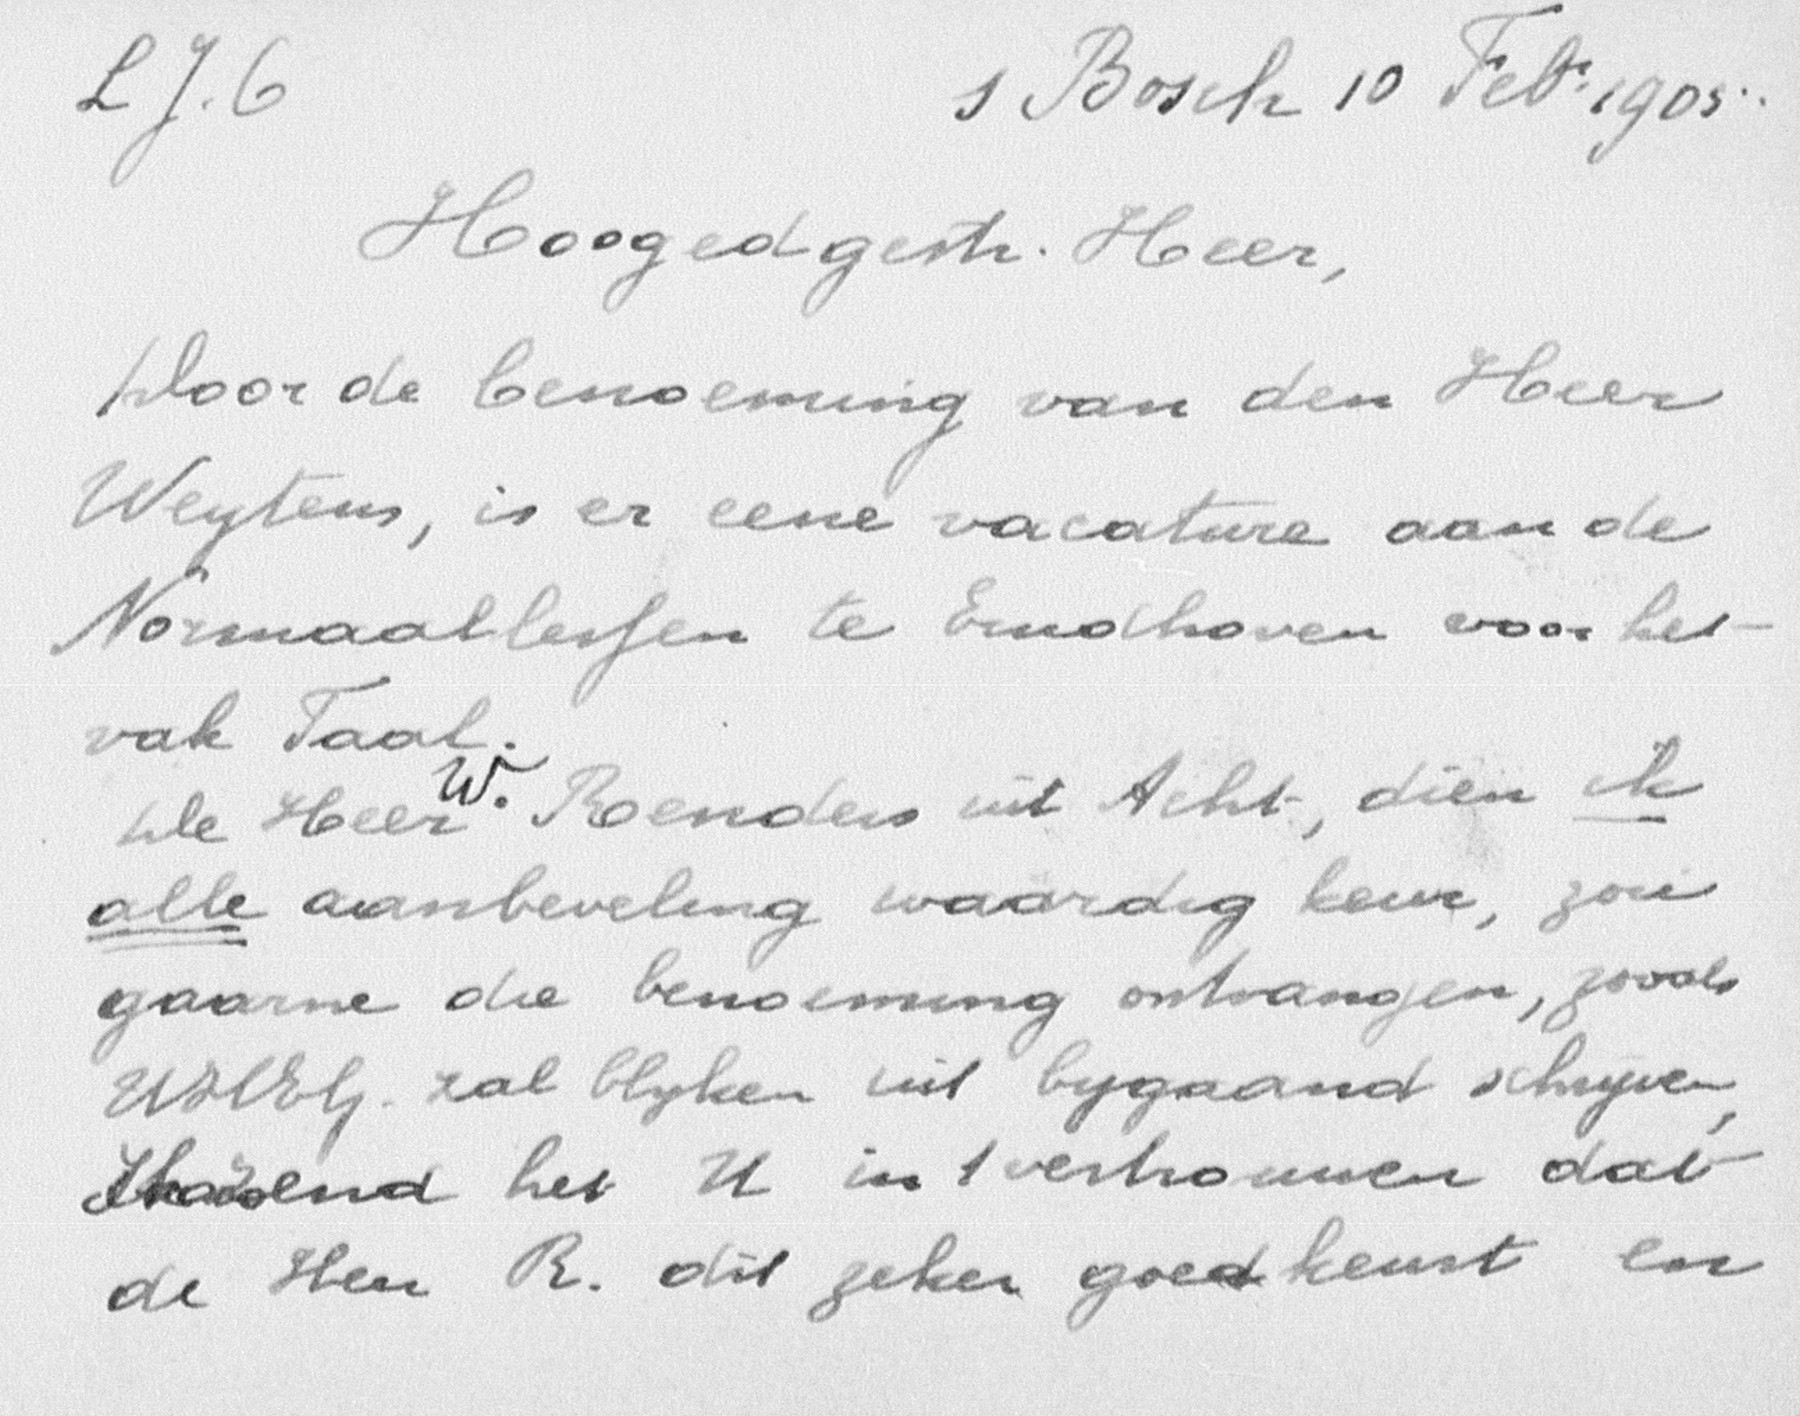 L J. C
s Bosch 10 Feb. 1905.
Hoogedgestr. Heer,
Door de benoeming van den Heer
Weytens, is er eene vacature aan de
Normaallessen te Eindhoven voor het
vak Taal.
De Heer W. Roenders uit Acht, dien ik
alle aanbeveling waardig keur, zou
gaarne die benoeming ontvangen, zooals
UWElG. zal blyken uit bygaand schryven,
het U in t vertrouwen dat
de Heer R. dit zeker goedkeurt en